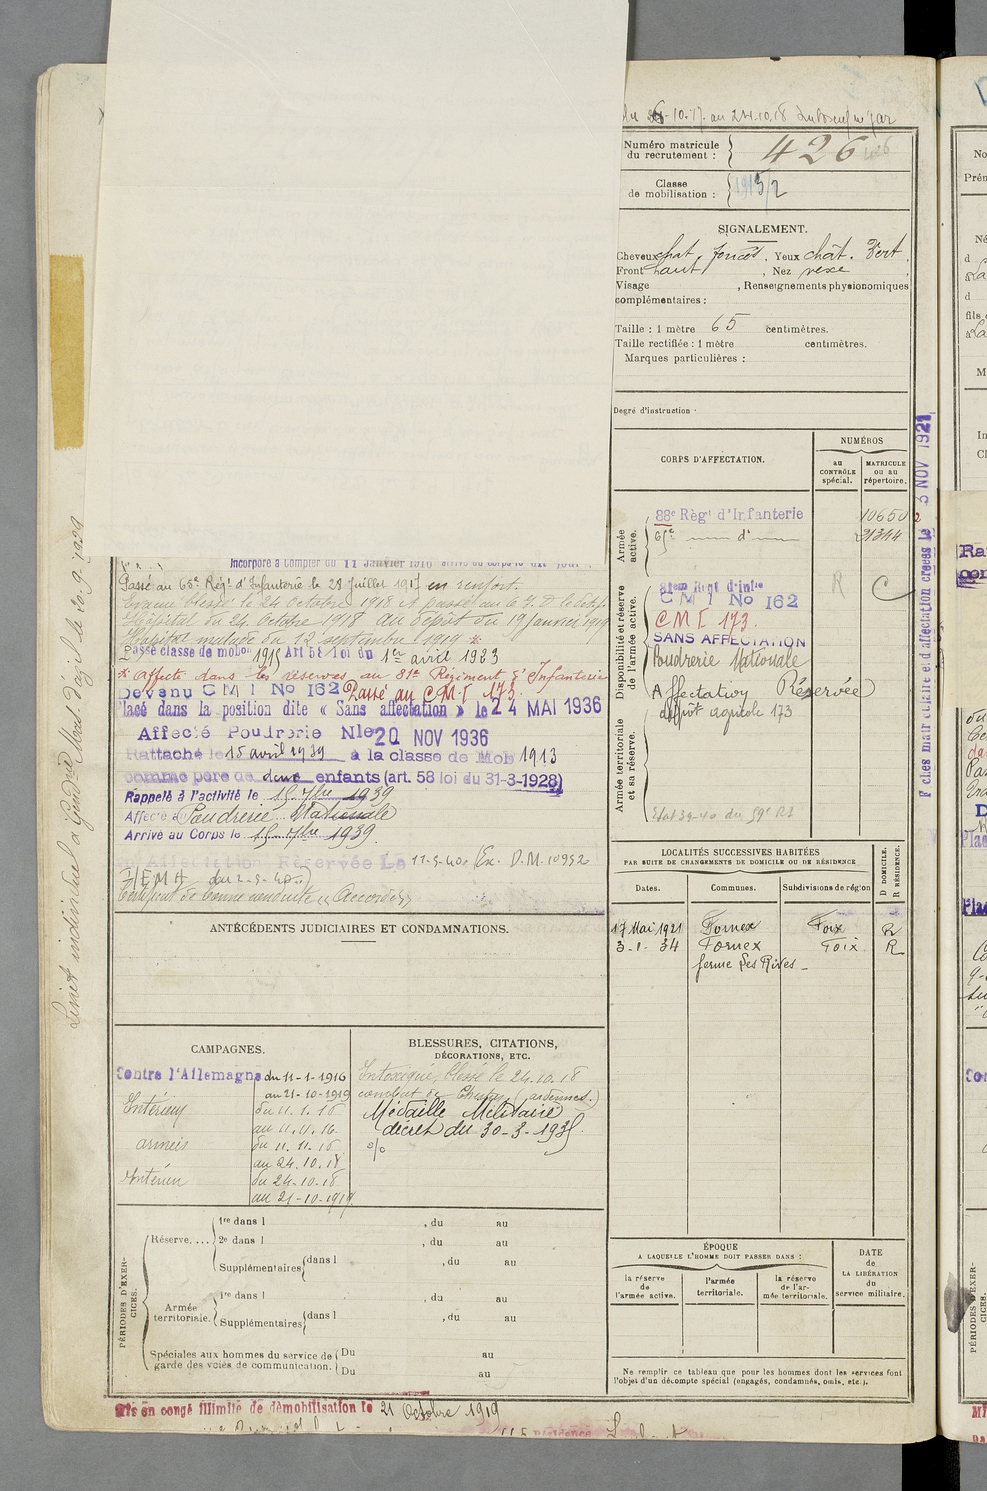 Numéro matricule
du recrutement : 426
Classe
de mobilisation :
SIGNALEMENT.
Cheveux chat. foncés, Yeux chât. Vert,
Front haut, Nez vexe
Visage , Renseignements physionomiques
complémentaires :
Taille : 1 mètre 65 centimètres.
Taille rectifiée : 1 mètre centimètres.
Marques particulières :
Degré d'instruction
CORPS D'AFFECTATION.
NUMÉROS
au
CONTRÔLE
spécial.
MATRICULE
ou au
répertoire.
Armée
active.
88e Régt d'Infanterie 10650
65e d° 21344
Disponibilité et réserve
de l'armée active.
81eme Regt d'Infie
C M I No 162
C M I 173.
SANS AFFECTATION
Poudrerie Nationale
Affectation Réservée
dépôt agricole 173
Armée territoriale
et sa réserve.
Fiches matriculaire et d'affectation créées le 3 NOV 1921
Livret individuel à Gend
Incorporé à compter du 11 Janvier 1916 arrivé au corps le dit jour
Passé au 65e Régt d'Infanterie le 28 Juillet 1917 en renfort.
Evacué blessé le 24 Octobre 1918 et passé au
Hôpital du 24 Octobre 1918 au dépôt du 19 Janvier 1919
Hôpital du 12 septembre 1919 *
Passé classe de mobon 1915 Art 58 loi du 1er avril 1923
* Affecté dans les réserves au 81e Régiment d'Infanterie
Devenu C M I No 162 Passé au C.M.I 173.
Placé dans la position dite « Sans affectation » le 24 MAI 1936
Affecté Poudrerie Nle 20 NOV 1936
Rattaché le 15 avril 1939 à la classe de Mob 1913
comme père de deux enfants (art. 58 loi du 31-3-1928)
Rappelé à l'activité le 15 7bre 1939
Affecté à Poudrerie Nationale
Arrivé au Corps le 15 7bre 1939
en Affectation Réservée Le 11-5-40 (Ex. D.M. 10952
I/EMA du 2-5-40)
Certificat de bonne conduite « Accordé »
ANTÉCÉDENTS JUDICIAIRES ET CONDAMNATIONS.
LOCALITÉS SUCCESSIVES HABITÉES
PAR SUITE DE CHANGEMENTS DE DOMICILE OU DE RÉSIDENCE
Dates. Communes. Subdivisions de région
D DOMICILE.
R RÉSIDENCE.
17 Mai 1921 Fornex Foix R
3-1-34 Fornex Foix R
ferme Les Rives
CAMPAGNES.
Contre l'Allemagne du 11-1-1916
au 21-10-1919
Intérieur du 11.1.16
au 11.11.16.
armées du 11.11.16
au 24.10.18
Intérieur du 24-10-18
au 21-10-1919
BLESSURES, CITATIONS,
DÉCORATIONS, ETC.
Intoxiqué, blessé le 24.10.18
combat de Chestres (Ardennes.)
Médaille Militaire
décret du 30-3-1935.
PÉRIODES D'EXERCICES.
Réserve. ... 1re dans l , du au
2e dans l , du au
Supplémentaires dans l , du au
Armée
territoriale. 1re dans l , du au
Supplémentaires dans l , du au
Spéciales aux hommes du service de
garde des voies de communication. Du au
Du au
ÉPOQUE
A LAQUELLE L'HOMME DOIT PASSER DANS :
la réserve
de
l'armée active.
l'armée
territoriale.
la réserve
de l'ar-
mée territoriale.
DATE
de
LA LIBÉRATION
du
service militaire.
Ne remplir ce tableau que pour les hommes dont les services font
l'objet d'un décompte spécial (engagés, condamnés, omis, etc.).
Mis en congé illimité de démobilisation le 21 Octobre 1919